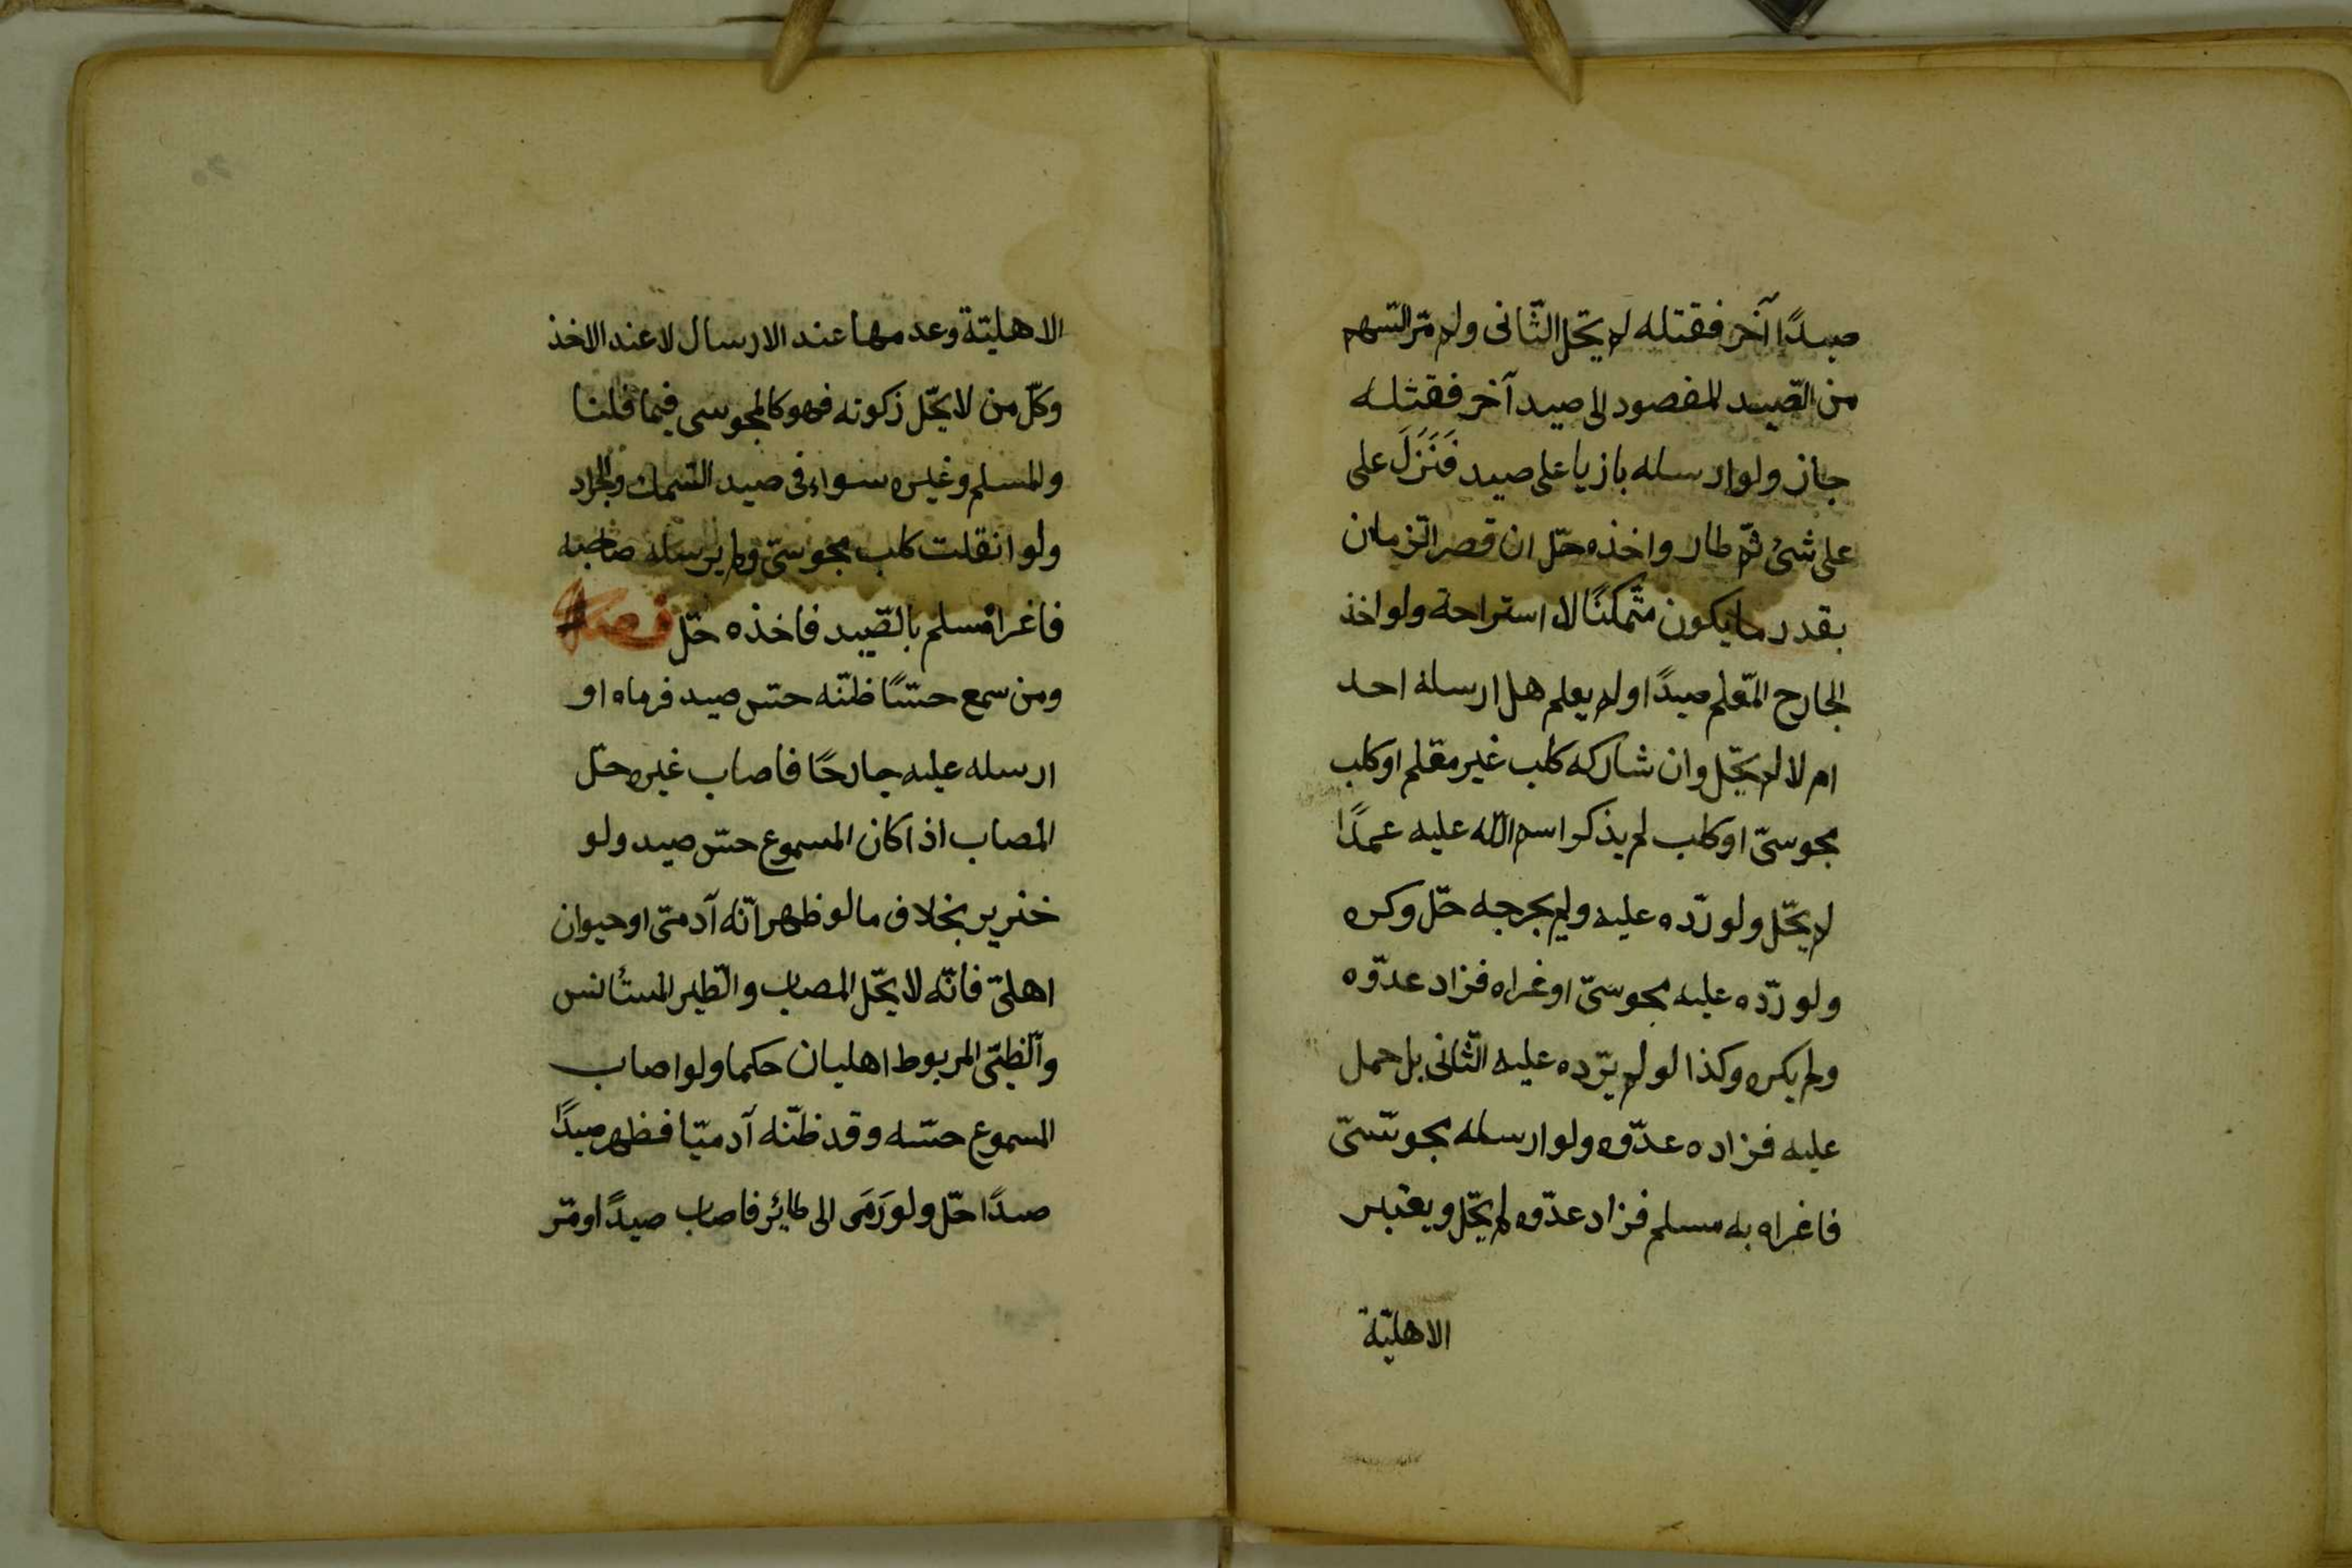 صيدًا آخر فقتله لم يحّل الثّانى ولم مّر السّهم
من الصّيد المقصود الى صيد آخر فقتله
جاز ولو ارسله بازيا على صيد فَنَزَلَ على
على شئ ثمّ طار واخذه حلّ ان قصر الزّمان
بقدر ما يكون متمكنًا لا استراحة ولو اخذ
الجارح المعّلم صيدًا ولم يعلم هل ارسله احد
ام لا لم يحّل وان شاركه كلب غير معّلم او كلب
مجوسىّ او كلب لم يذكر اسم الله عليه عمدًا
لم يحّل ولو ردّه عليه ولم يجرحه حلّ وكره
ولو ردّه عليه مجوسىّ او غراه فزاد عدّوه
ولم يكره وكذا لو لم يردّه عليه الثّانى بل حمل
عليه فزاده عدّوه ولو ارسله مجوسّىّ
فاغراه به مسلم فزاد عدّوه لم يحّل ويعتبر
الاهليّة
الاهليّة وعدمها عند الارسال لا عند الاخذ
وكلّ من لا يحّل زكوته فهو كالمجوسى فيما قلنا
والمسلم وغيره سواء فى صيد السّمك والجراد
ولو انقلت كلب مجوسىّ ولم يرسله صاحبه
فاغراه مسلم بالصّيد فاخذه حلّ فصل
ومن سمع حسًّا ظنّه حسّ صيد فرماه او
ارسله عليه جارحًا فاصاب غيره حلّ
المصاب اذا كان المسموع حسّ صيد ولو
خنزير بخلاف ما لو ظهر انّه آدمىّ او حيوان
اهلىّ فانّه لا يحّل المصاب والطّير المستأنس
والظّبىّ المربوط اهليان حكما ولو اصاب
المسموع حسّه وقد ظنّه آدميّا فظهر صيدًا
صيدًا حلّ ولو رَمَى الى طائر فاصاب صيدًا ومّر